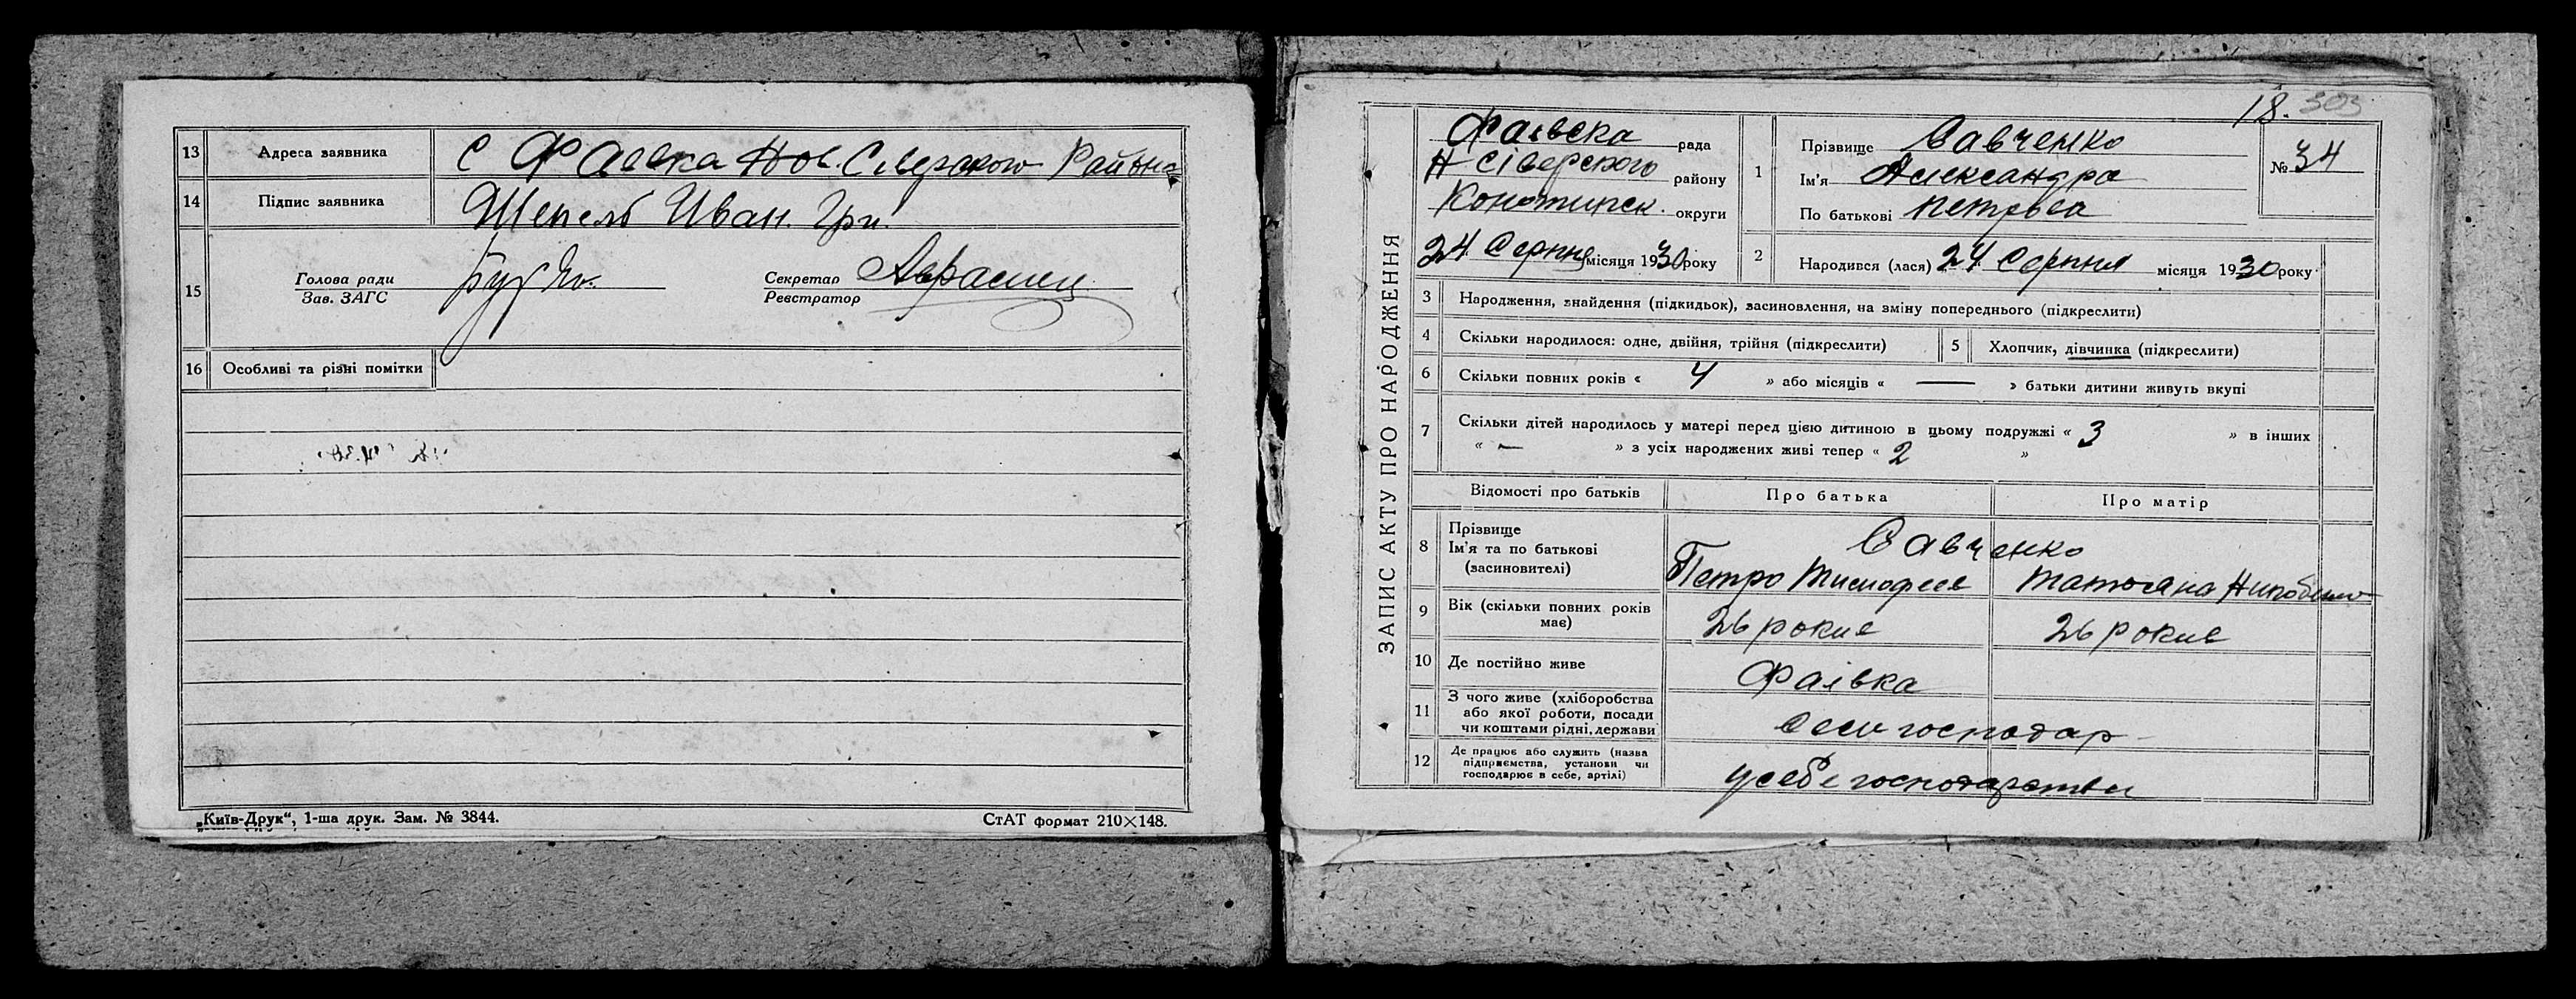 13 Адреса заявника С Фаевка Нов. Сіверского Района
14 Підпис заявника Шепель Иван. Гри.
15 Голова ради Секретар
Зав. ЗАГС Реєстратор
16 Особливі та різні помітки
„Київ-Друк“, 1-ша друк. Зам. № 3844. СтАТ формат 210×148.
18. 303
ЗАПИС АКТУ ПРО НАРОДЖЕННЯ
Фаівска рада
Н Сіверского району
Конотипск. округи
24 Серпня місяця 1930 року
1 Прізвище Савченко
Ім'я Александра
По батькові Петровна
№ 34
2 Народився (лася) 24 Серпня місяця 1930 року
3 Народження, знайдення (підкидьок), засиновлення, на зміну попереднього (підкреслити)
4 Скільки народилося: одне, двійня, трійня (підкреслити) 5 Хлопчик, дівчинка (підкреслити)
6 Скільки повних років « 4 » або місяців « — » батьки дитини живуть вкупі
7 Скільки дітей народилось у матері перед цією дитиною в цьому подружжі « 3 » в інших
« — » з усіх народжених живі тепер « 2 »
Відомості про батьків Про батька Про матір
8 Прізвище
Ім'я та по батькові
(засиновителі)
Савченко
Петро Тимофеев Татьяна
9 Вік (скільки повних років має) 26 рокив 26 рокив
10 Де постійно живе Фаівка
11 З чого живе (хліборобства
або якої роботи, посади
чи коштами рідні, держави
господар
12 Де працює або служить (назва
підприємства, установи чи
господарює в себе, артілі)
усебе господарстви